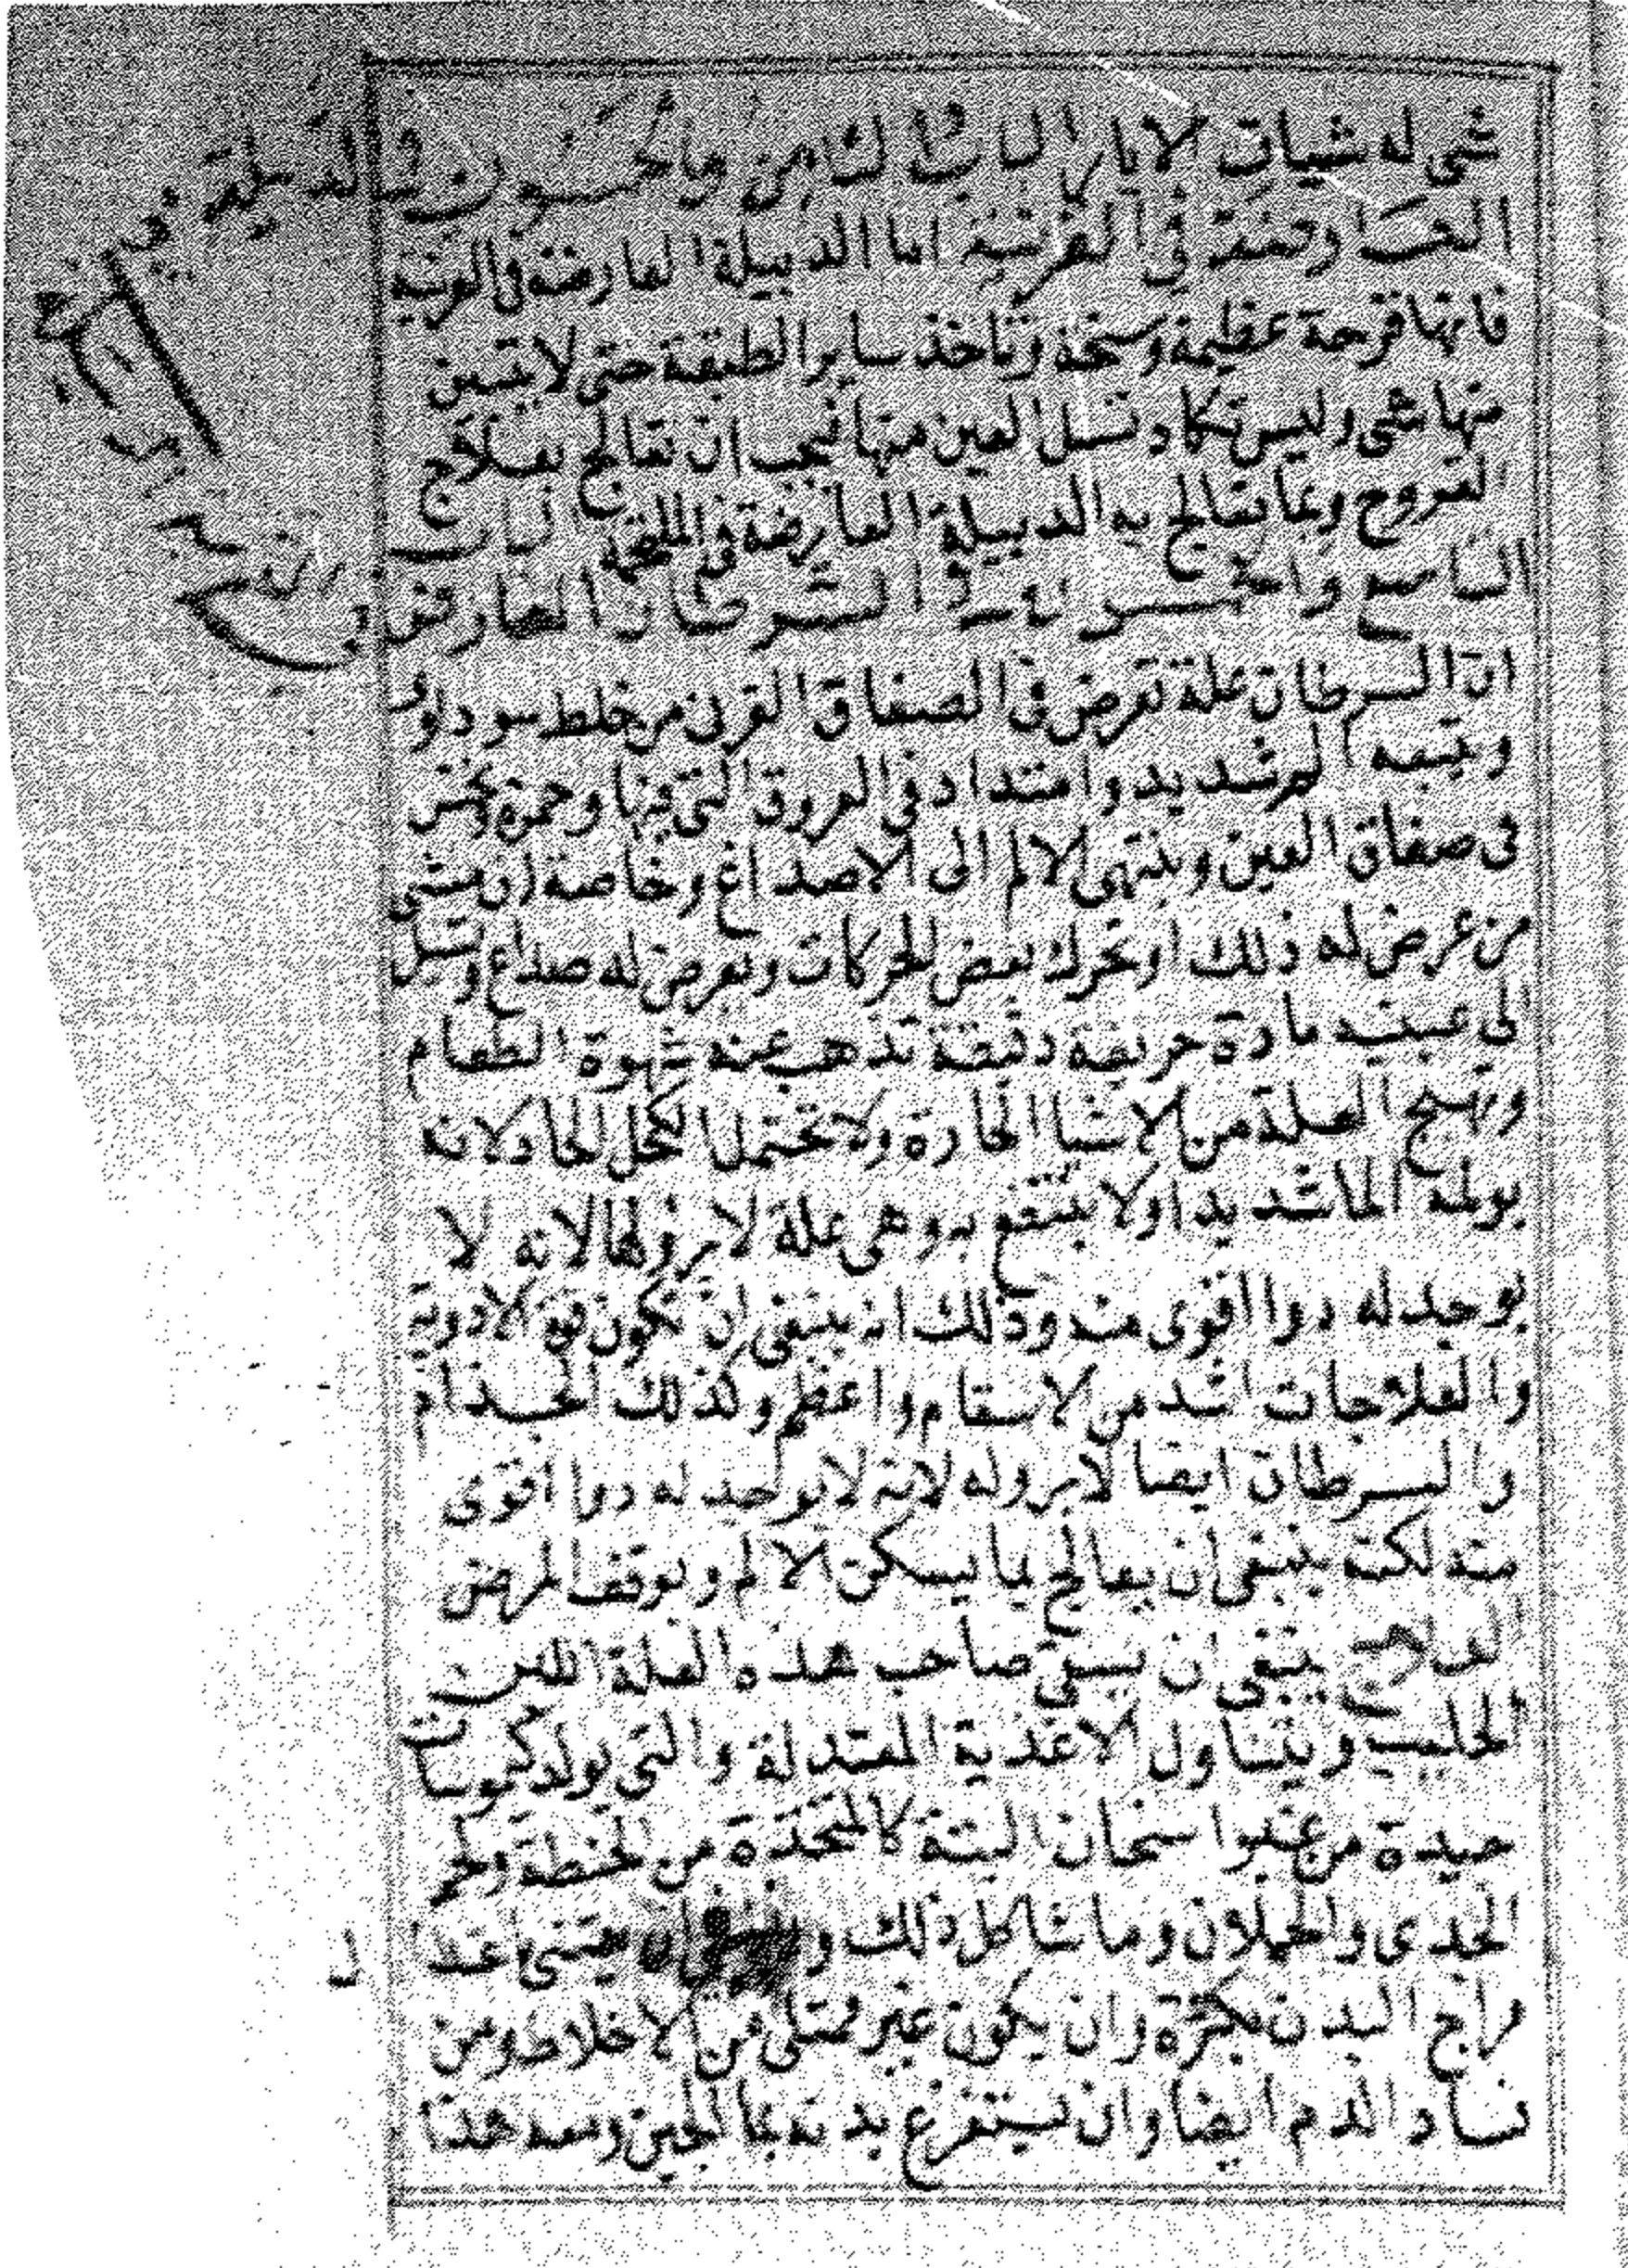 شى له شياف الابار الباب الثامن والخمسون فى الدبيلة
العارضة في القرنية اما الدبيلة العارضة فى القرنية
فانها قرحة عظيمة وسخة وتاخذ ساير الطبقة حتى لا يتبين
منها شى وليس تكاد تسلم العين منها فيجب ان تعالج بعلاج
القروح وبما تعالج به الدبيلة العارضة فى الملتحمة الباب
التاسع والخمسون فى السرطان العارض
ان السرطان علة تعرض فى الصفاق القرنى من خلط سوداوى
ويتبعه الم شديد وامتداد فى العروق التى فيها وحمرة ونخس
فى صفاق العين وينتهى الالم الى الاصداغ وخاصة ان مشى
من عرض له ذلك او تحرك بعض الحركات وتعرض له صداع وتسيل
الى عينيه مادة حريفة دقيقة تذهب عنه شهوة الطعام
وتهيج العلة من الاشيا الحارة ولا تحتمل الكحل الحاد لانه
يولمه الما شديدا ولا ينتفع به وهى علة لا برو لها لانه لا
يوجد له دوا اقوى منه وذلك انه ينبغى ان تكون قوة الادوية
والعلاجات اشد من الاسقام واعظم وكذلك الجذام
والسرطان ايضا لا برو له لانه لا يوجد له دوا اقوى
منه لكنه ينبغى ان يعالج بما يسكن الالم ويوقف المرض
العلاج ينبغى ان يسقى صاحب هذه العلة اللبن
الحليب ويتناول الاغذية المعتدلة والتى تولد كيموسات
جيدة من غير اسخان البتة كالمتخذة من الحنطة ولحم
الجدى والحملان وما شاكل ذلك وينبغى ان يعتنى اعتدال
مزاج البدن بكثرة وان يكون غير ممتلى من الاخلاط ومن
فساد الدم ايضا وان يستفرغ بدنه بما الجبن ومعه هذا